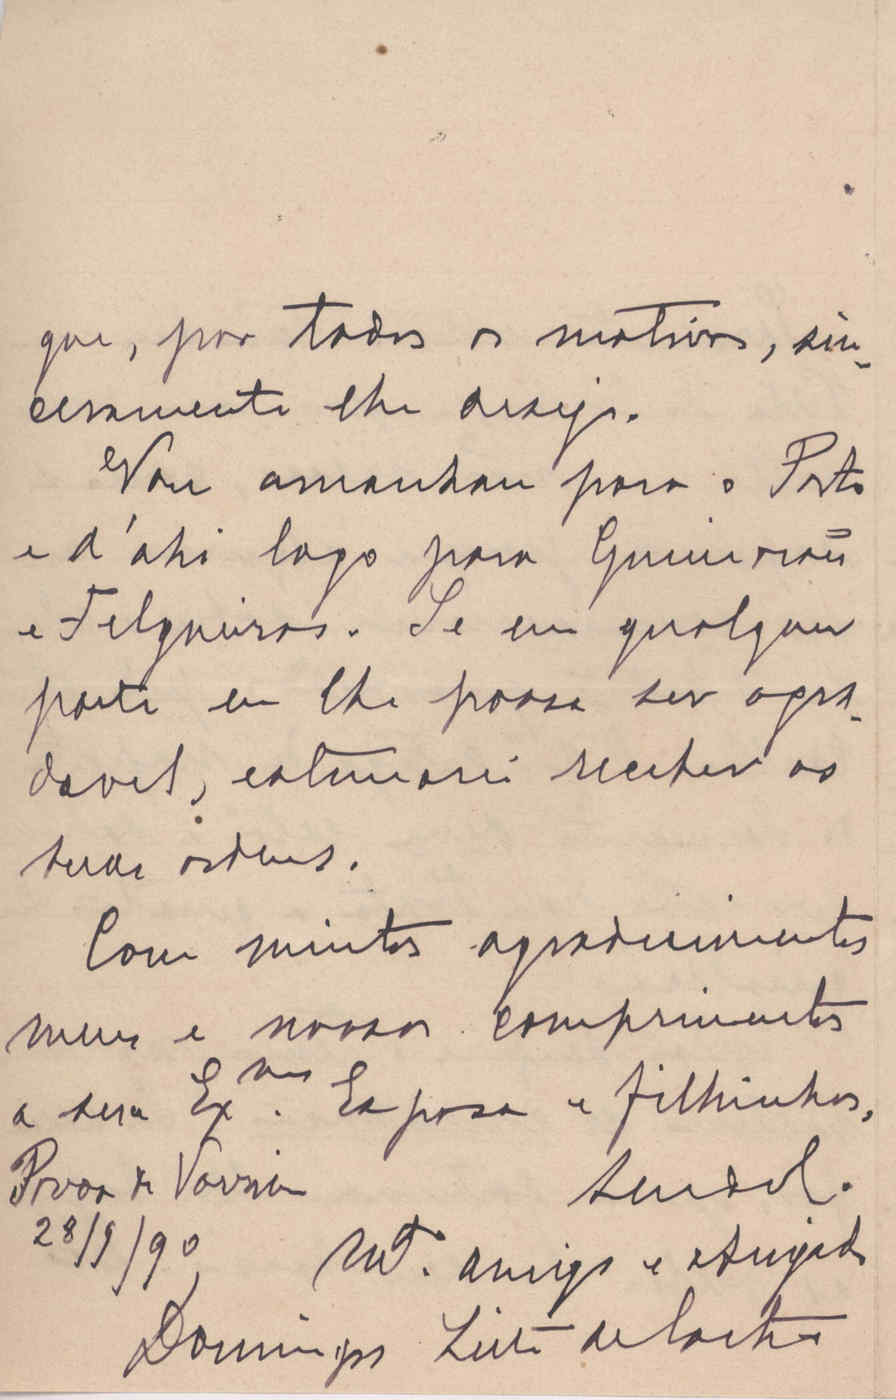 que, por todos os motivos, sin-
ceramente lhe desejo.
Vou amanhan para o Porto
e d'ahi logo para Guimarães
e Felgueiras. Se em qualquer
parte eu lhe possa ser agra-
davel, estimarei receber as
suas ordens.
Com muitos agradecimentos
meus e nossos comprimentos
a sua Ex.ma Esposa e filhinhos,
Povoa de Varzim
28/9/90
Mt.º amigo e obrigado
Domingos Leite de Castro